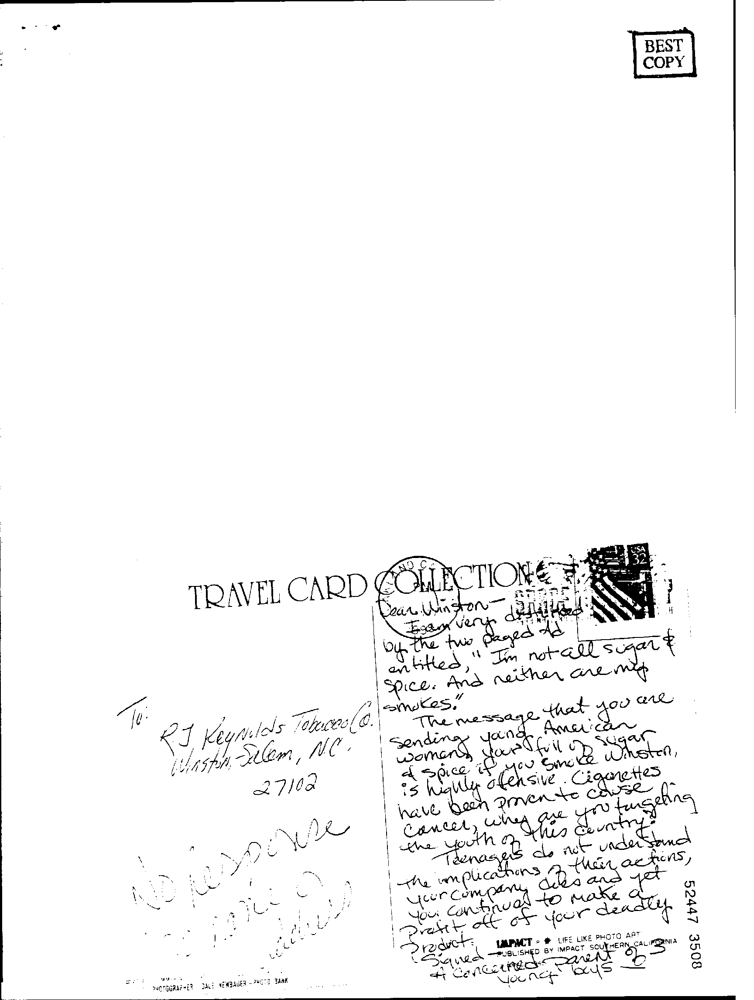 BEST
COPY
TRAVEL CARD COLLECTION
Dear Winston-
I am very
by the two paged Ad
entitled, "I'm not all sugar &
spice. And neither are my
smokes."
The message that you are
sending young American
womens, your full of sugar
& spice if you smoke Winston,
is highly ofensive. Cigarettes
have been proven to cause
cancer, why are you targeting
the youth of this country?
Teenagers do not understand
the implications of their actions,
your company does and yet
you continued to make a
Profit off of your deadly
Product.
Signed
A concerned Parent of 3
young boys
To:
RJ Reynolds Tobacco Co.
Winston-Salem, NC.
27102
No response
IMPACT LIFE LIKE PHOTO ART
PUBLISHED BY IMPACT SOUTHERN CALIFORNIA
PHOTOGRAPHER DALE NEWBAUER - PHOTO BANK
52447 3508